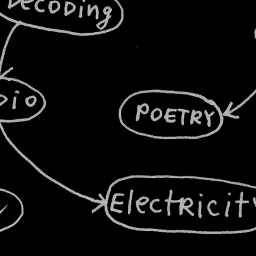 Decoding
dio
POETRY
Electricity